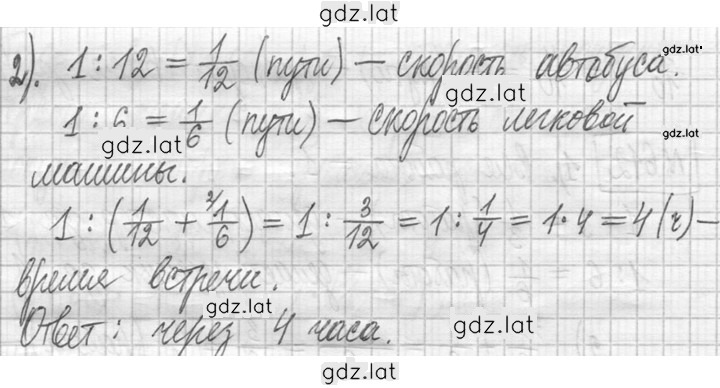 gdz.lat
2). 1 : 12 = 1/12 (пути) – скорость автобуса.
gdz.lat
gdz.lat
1 : 6 = 1/6 (пути) – скорость легковой
gdz.lat
gdz.lat
машины.
1 : (1/12 + ²⁾1/6) = 1 : 3/12 = 1 : 1/4 = 1 · 4 = 4 (ч) –
время встречи.
gdz.lat
Ответ: через 4 часа.
gdz.lat
gdz.lat